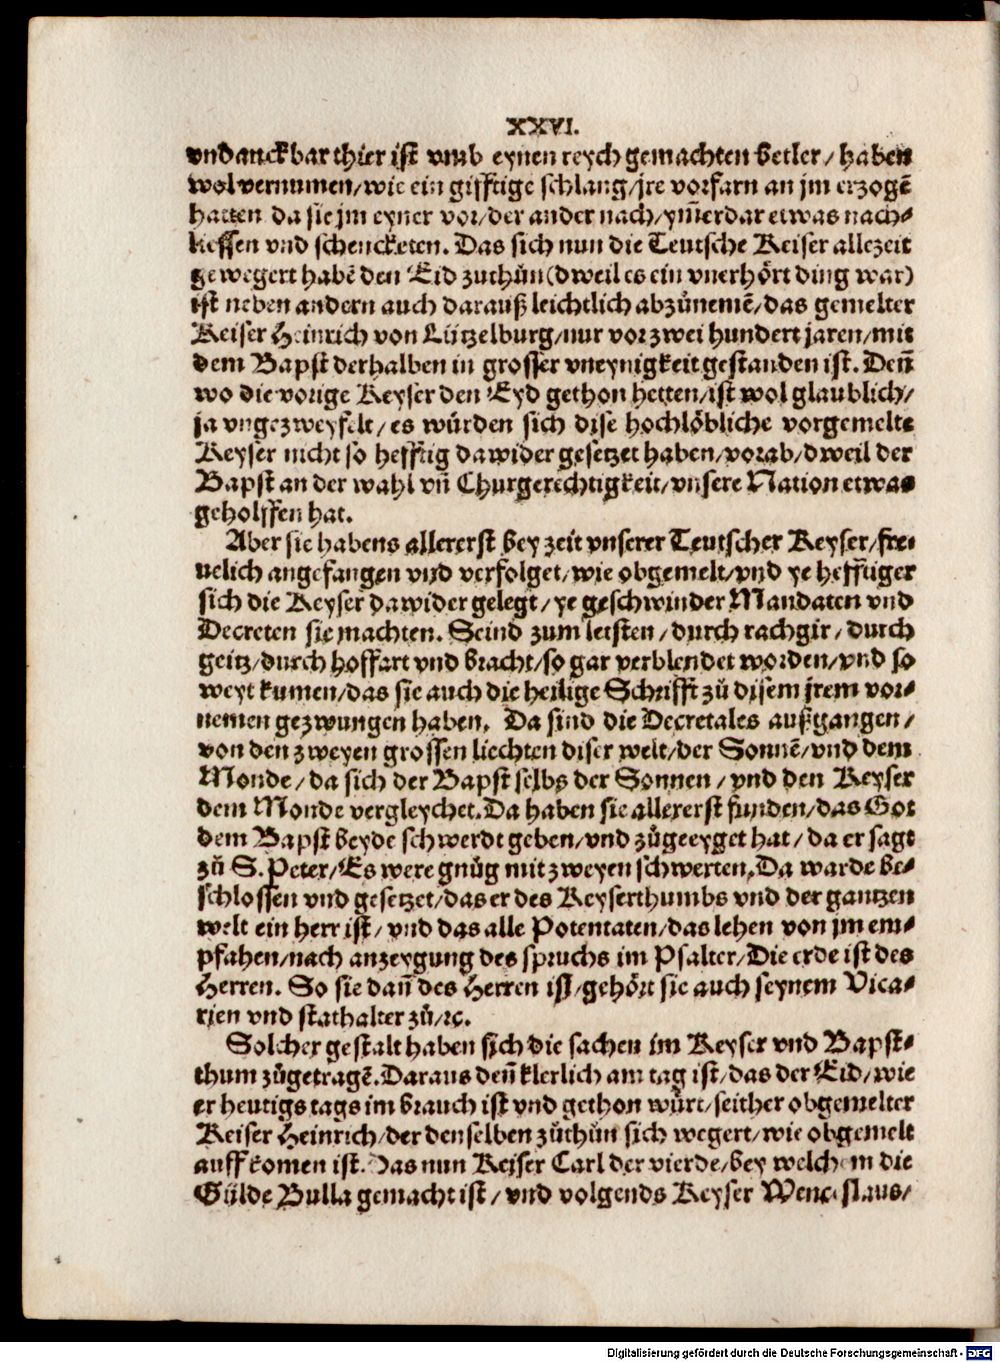 XXVI.
vndanckbar thier ist vmb eynen reych gemachten betler/ haben
wol vernumen/wie ein gifftige schlang/jre vorfarn an jm erzogē
hatten da sie jm eyner vor/der ander nach/ym̄erdar etwas nach⸗
liessen vnd schencketen. Das sich nun die Teutsche Keiser allezeit
gewegert habē den Eid zuthůn(dweil es ein vnerhört ding war)
ist neben andern auch darauß leichtlich abzůnemē/das gemelter
Keiser Heinrich von Lützelburg/nur vor zwei hundert jaren/mit
dem Bapst derhalben in grosser vneynigkeit gestanden ist. Deñ
wo die vorige Keyser den Eyd gethon hetten/ist wol glaublich/
ja vngezweyfelt/es würden sich dise hochlöbliche vorgemelte
Keyser nicht so hefftig dawider gesetzet haben/vorab/dweil der
Bapst an der wahl vñ Churgerechtigkeit/vnsere Nation etwas
geholffen hat.
Aber sie habens allererst bey zeit vnserer Teutscher Keyser/fre⸗
uelich angefangen vnd verfolget/wie obgemelt/vnd ye hefftiger
sich die Keyser dawider gelegt/ye geschwinder Mandaten vnd
Decreten sie machten. Seind zum letsten/durch rachgir/durch
geitz/durch hoffart vnd bracht/so gar verblendet worden/vnd so
weyt kumen/das sie auch die heilige Schrifft zů disem jrem vor⸗
nemen gezwungen haben. Da sind die Decretales außgangen/
von den zweyen grossen liechten diser welt/der Sonnē/vnd dem
Monde/da sich der Bapst selbs der Sonnen/vnd den Keyser
dem Monde vergleychet. Da haben sie allererst funden/das Got
dem Bapst beyde schwerdt geben/vnd zůgeeyget hat/da er sagt
zů S. Peter/Es were gnůg mit zweyen schwerten. Da warde be⸗
schlossen vnd gesetzet/das er des Keyserthumbs vnd der gantzen
welt ein herr ist/vnd das alle Potentaten/das lehen von jm em⸗
pfahen/nach anzeygung des spruchs im Psalter/Die erde ist des
Herren. So sie dañ des Herren ist/gehört sie auch seynem Vica⸗
rien vnd stathalter zů/ꝛc.
Solcher gestalt haben sich die sachen im Keyser vnd Bapst⸗
thum zůgetragē. Daraus deñ klerlich am tag ist/das der Eid/wie
er heutigs tags im brauch ist vnd gethon würt/seither obgemelter
Keiser Heinrich/der denselben zůthůn sich wegert/wie obgemelt
auffkomen ist. Das nun Keiser Carl der vierde/bey welchem die
Gülde Bulla gemacht ist/vnd volgends Keyser Wenceslaus/
Digitalisierung gefördert durch die Deutsche Forschungsgemeinschaft - DFG